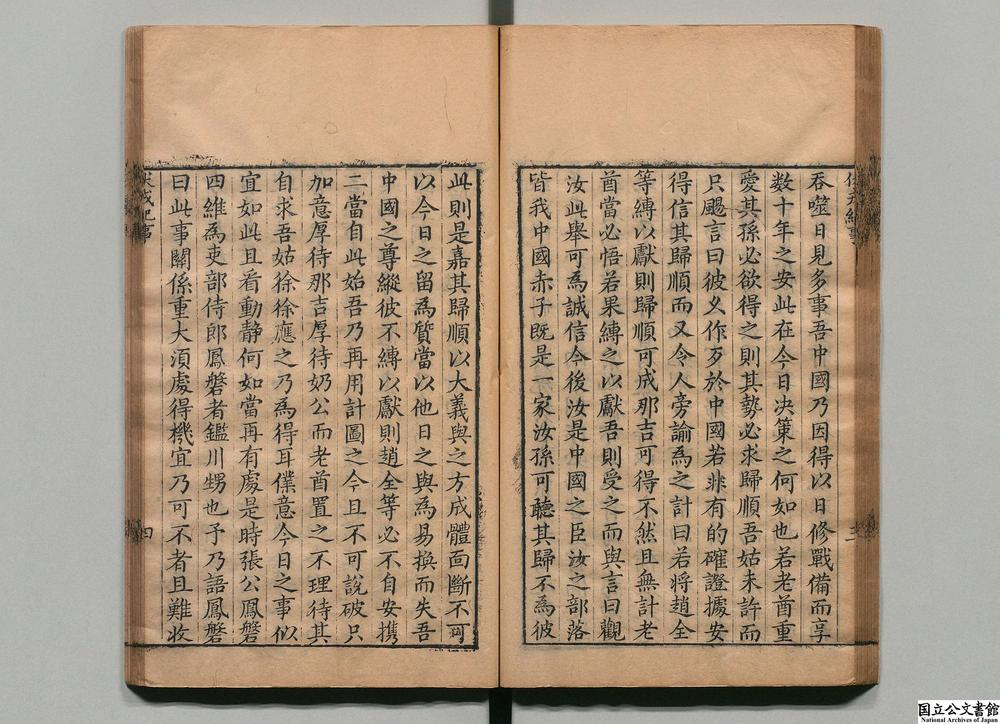 吞噬日見多事吾中國乃因得以日修戰備而享
數十年之安此在今日決策之何如也若老酋重
愛其孫必欲得之則其勢必求歸順吾姑未許而
只颺言曰彼乂作歹於中國若非有的確證據安
得信其歸順而又令人旁諭為之計曰若將趙全
等縛以獻則歸順可成那吉可得不然且無計老
酋當必悟若果縛之以獻吾則受之而與言曰觀
汝此舉可為誠信今後汝是中國之臣汝之部落
皆我中國赤子既是一家汝孫可聽其歸不為彼
三
此則是嘉其歸順以大義與之方成體面斷不可
以今日之留為質當以他日之與為易換而失吾
中國之尊縱彼不縛以獻則趙全等必不自安携
二當自此始吾乃再用計圖之今且不可說破只
加意厚待那吉厚待奶公而老酋置之不理待其
自求吾姑徐徐應之乃為得耳僕意今日之事似
宜如此且看動静何如當再有處是時張公鳳磐
四維為吏部侍郎鳳磐者鑑川甥也予乃語鳳磐
曰此事關係重大須處得機宜乃可不者且難收
伏戎紀事
四
国立公文書館
National Archives of Japan